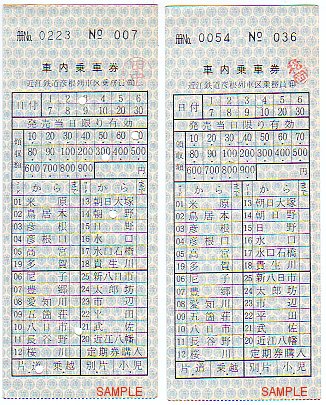 冊No. 0223 No 007
車内乗車券
近江鉄道彦根列車区乗務員
日付 1 2 3 4 5 6
7 8 9 10 20 30
発売当日限り有効
領収額 10 20 30 40 50 60 70
80 90 100 200 300 400 500
600 700 800 900 円
から まで から まで
01 米原 13 朝日大塚
02 鳥居本 14 朝日野
03 彦根 15 日野
04 彦根口 16 水口
05 高宮 17 水口石橋
19 多賀 18 貴生川
06 尼子 25 新八日市
07 豊郷 24 太郎坊
08 愛知川 23 市辺
09 五箇荘 22 平田
10 八日市 21 武佐
11 長谷野 20 近江八幡
12 桜川 定期券購入
片道 乗越 別片 小児
SAMPLE
冊No. 0054 No 036
車内乗車券
近江鉄道彦根列車区乗務員
日付 1 2 3 4 5 6
7 8 9 10 20 30
発売当日限り有効
領収額 10 20 30 40 50 60 70
80 90 100 200 300 400 500
600 700 800 900 円
から まで から まで
01 米原 13 朝日大塚
02 鳥居本 14 朝日野
03 彦根 15 日野
04 彦根口 16 水口
05 高宮 17 水口石橋
19 多賀 18 貴生川
06 尼子 25 新八日市
07 豊郷 24 太郎坊
08 愛知川 23 市辺
09 五箇荘 22 平田
10 八日市 21 武佐
11 長谷野 20 近江八幡
12 桜川 定期券購入
片道 乗越 別片 小児
SAMPLE